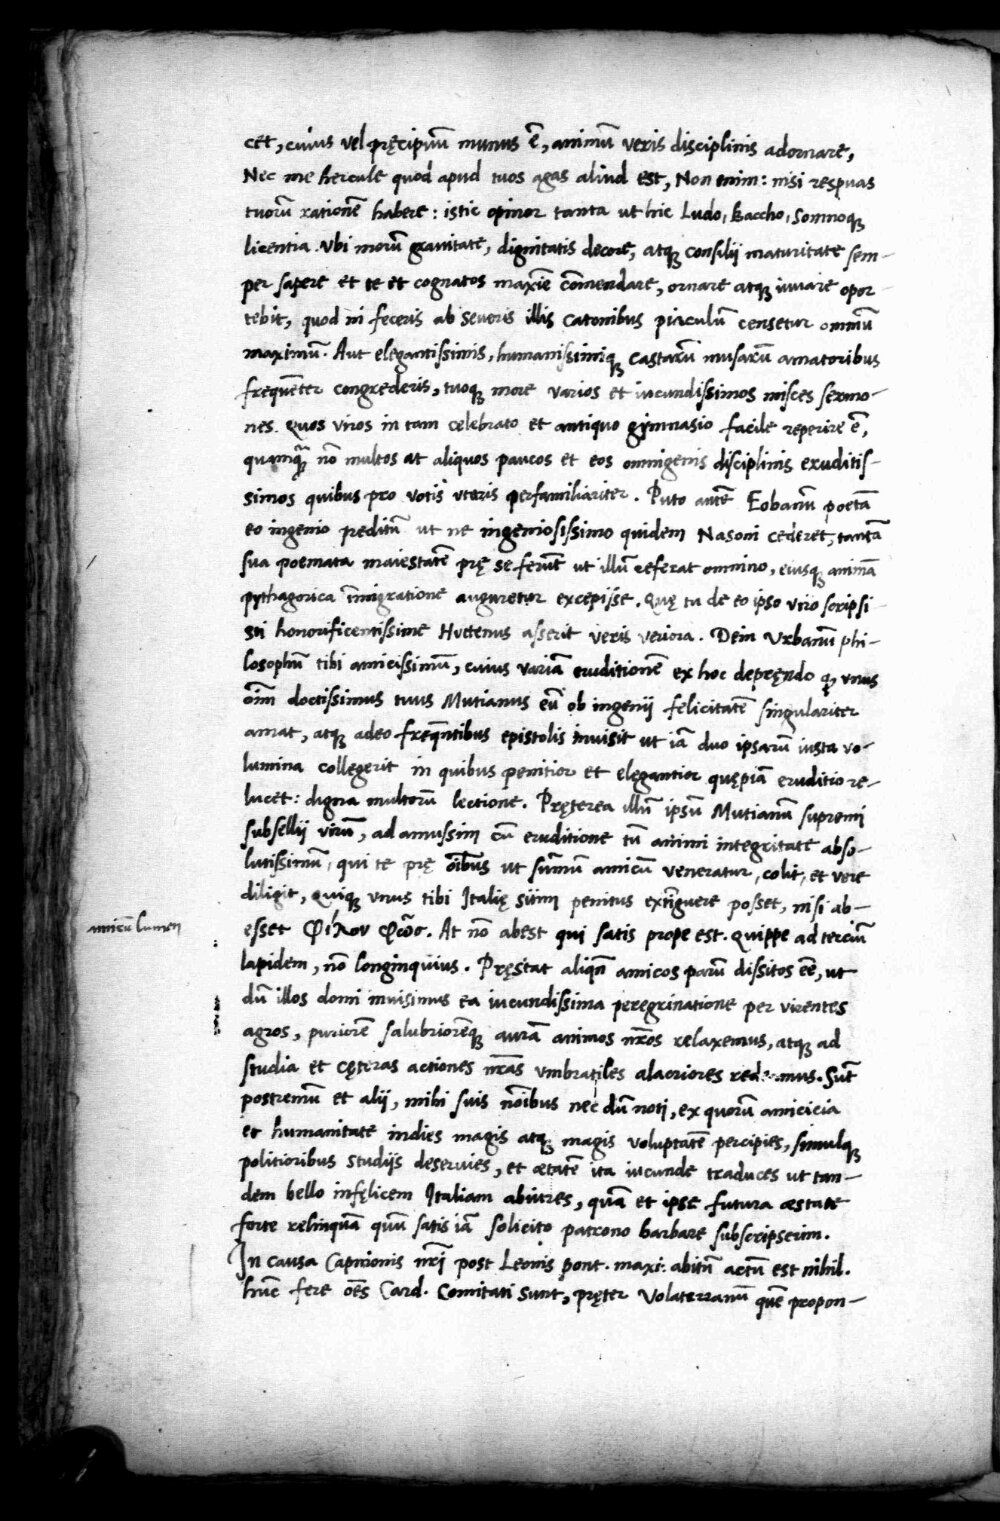 cet, cuius vel pręcipuũ munus ẽ, animũ veris disciplinis adornare,
Nec me hercule quod apud tuos agas aliud est, Non enim: nisi respuas
tuorũ rationẽ habere: istic opinor tanta ut hic Ludo, Baccho, Somnoqꝫ
licentia. Vbi morũ grauitate, dignitatis decore, atqꝫ consilij maturitate sem-
per sapere et te et cognatos maxĩe cõmendare, ornare atqꝫ iuuare opor-
tebit, quod ni feceris ab Seueris illis Catonibus piaculũ censetur omniũ
maximũ. Aut elegantissimis, humanissimisqꝫ castarũ musarũ amatoribus
frequẽter congrederis, tuoqꝫ more varios et iucundissimos misces sermo-
nes. Quos viros in tam celebrato et antiquo gymnasio facile reperire ẽ,
quamqꝫ̃ nõ multos at aliquos paucos et eos omnigenis disciplinis eruditis-
simos quibus pro votis vteris perfamiliariter. Puto autẽ Eobanũ poetã
eo ingenio preditũ ut ne ingeniosissimo quidem Nasoni cederet, tantã
sua poemata maiestatẽ prę se ferũt ut illũ referat omnino, eiusqꝫ animã
pythagorica ĩmigratione auguretur excepisse. Quę tu de eo ipso viro scripsi-
sti honorificentissime Huttenus asserit veris veriora. Dein Vrbanũ phi-
losophũ tibi amicissimũ, cuius variã eruditionẽ ex hoc depręndo qꝫ vnus
oĩm doctissimus tuus Mutianus eũ ob ingenij felicitatẽ singulariter
amat, atqꝫ adeo freqũtibus epistolis inuisit ut iã duo ipsarũ iusta vo-
lumina collegerit in quibus penitior et elęgantior quępiã eruditio re-
lucet: digna multorũ lectione. Pręterea illũ ipsũ Mutianũ supremi
subsellij virũ, ad amussim cũ eruditione tũ animi integritate abso-
lutissimũ, qui te prę oĩbus ut sũmũ amicũ veneratur, colit, et vere
diligit, quiqꝫ vnus tibi Italię sitim penitus extĩguere posset, nisi ab-
amicũ lumen
esset Φίλον Φῶς. At nõ abest qui satis prope est. Quippe ad terciũ
lapidem, nõ longinquius. Pręstat aliqñ amicos parũ dissitos eẽ, ut
dũ illos domi inuisimus ea iucundissima peregrinatione per virentes
agros, puriorẽ salubrioremqꝫ aurã animos nr̃os relaxemus, atqꝫ ad
studia et cęteras actiones nr̃as vmbratiles alacriores redeamus. Sũt
postremũ et alij, mihi suis nõibus nec dũ noti, ex quorũ amicicia
et humanitate indies magis atqꝫ magis voluptatẽ percipies, simulqꝫ
politioribus studijs deseruies, et ætatẽ ita iucunde traduces ut tan-
dem bello infęlicem Italiam abiures, quã et ipse futura æstate
forte relinquã quũ satis iã solicito patrono barbare subscripserim.
In causa Capnionis nr̃i post Leonis pont. maxi. abitũ actũ est nihil.
hũc fere oẽs Card. Comitati sunt, pręter Volaterranũ quẽ propon-